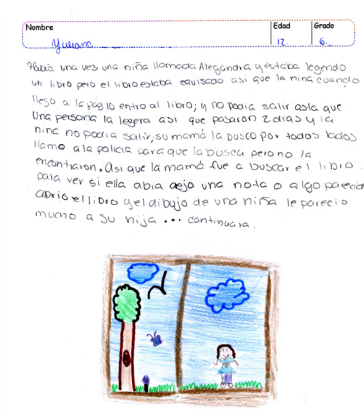 Nombre Edad Grado
Yuliana 12 6
Había una ves una niña llamada Alegandra y estaba legendo
un libro pero el libro estaba equisado asi que la niña cuando
llego a la pagi lo entro al libro; y no podia salir asta que
una persona la legera asi que pasaron 2 dias y la
nina no podia salir, su mamá la busco por todos lados
llamo a la policia para que la busca pero no la
encontraron. Asi que la mamá fue a buscar el libro
para ver si ella abia dejo una nota o algo parecid
abrio el libro y el dibujo de una niña le parecio
mucho a su hija ... continuara.